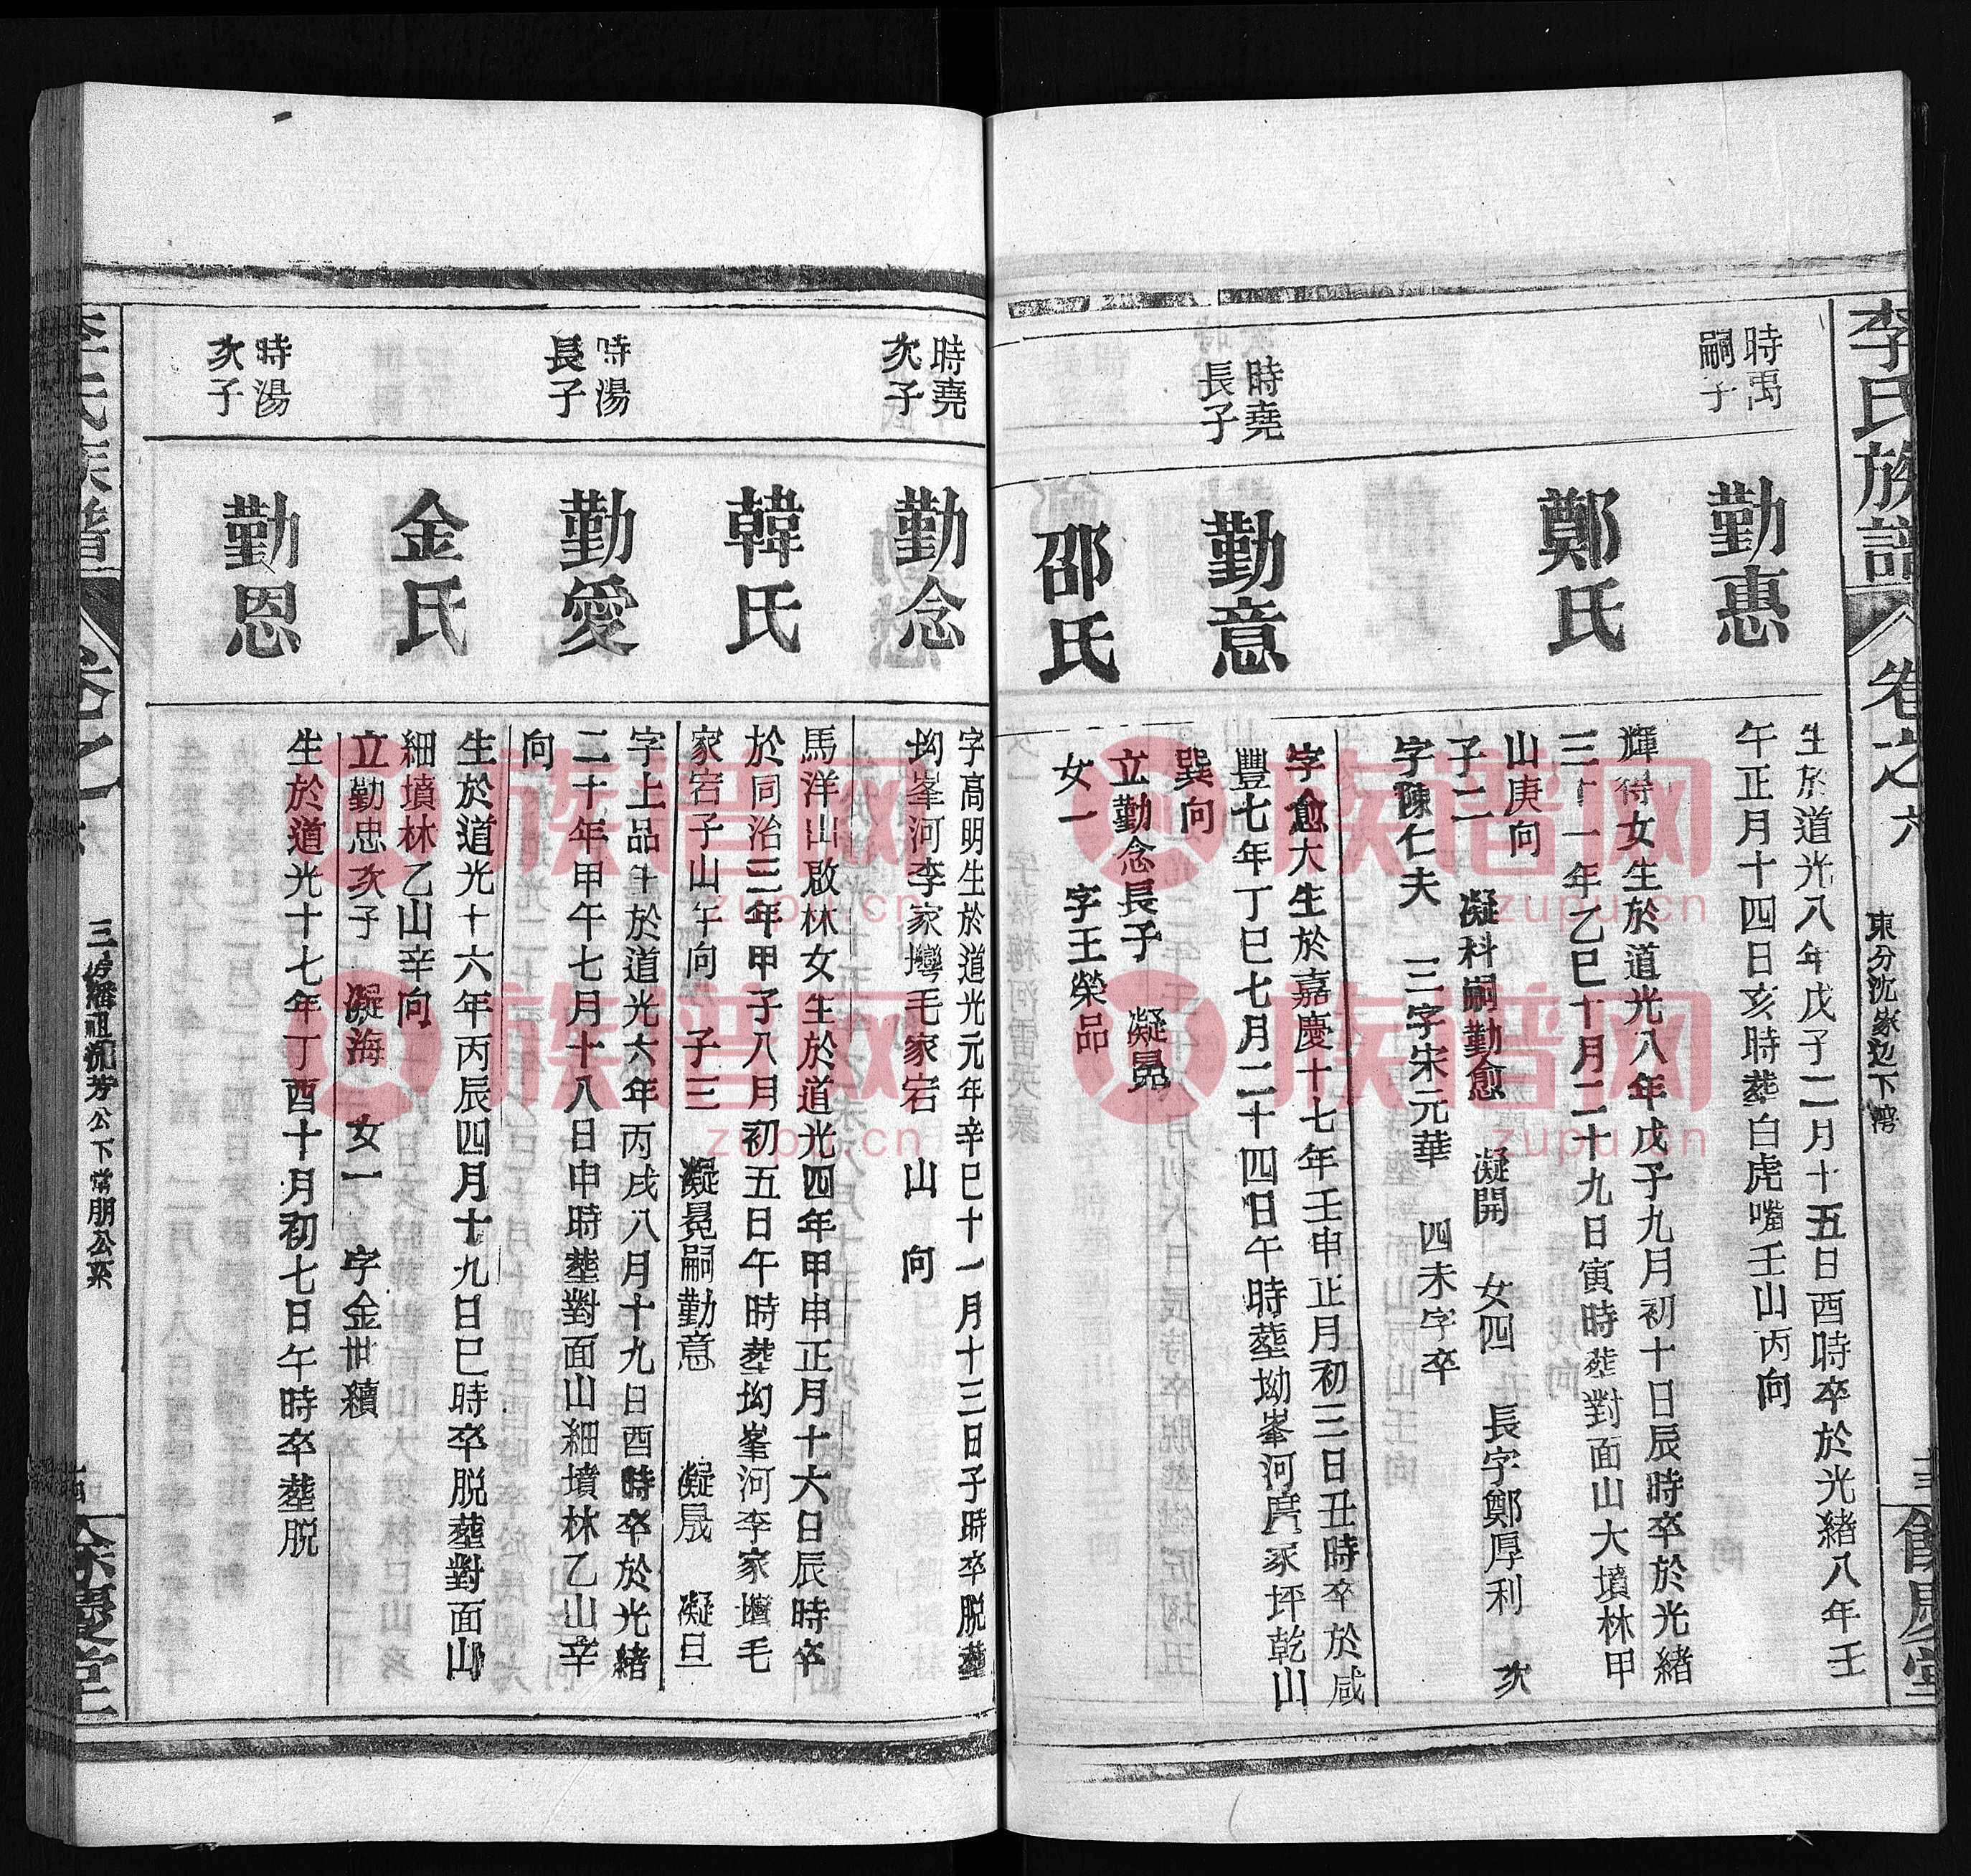 李氏族譜
卷之六
東分沈家边下灣
餘慶堂
時禹
嗣子
勤惠
生於道光八年戊子二月十五日酉時卒於光緒八年壬
午正月十四日亥時葬白虎嘴壬山丙向
鄭氏
輝得女生於道光八年戊子九月初十日辰時卒於光緒
三十一年乙巳十月二十九日寅時葬對面山大墳林甲
山庚向
子二 凝科嗣勤愈 凝開 女四 長字鄭厚利 次
字陳仁夫 三字宋元華 四未字卒
時堯
長子
勤意
字愈大生於嘉慶十七年壬申正月初三日丑時卒於咸
豐七年丁巳七月二十四日午時葬坳峯河庹家坪乾山
巽向
邵氏
立勤念長子 凝晃
女一 字王榮品
時堯
次子
勤念
字高明生於道光元年辛巳十一月十三日子時卒脱葬
坳峯河李家灣毛家宕 山 向
韓氏
馬洋山啟林女生於道光四年甲申正月十六日辰時卒
於同治三年甲子八月初五日午時葬坳峯河李家壪毛
家宕子山午向 子三 凝晃嗣勤意 凝晟 凝旦
時湯
長子
勤愛
字上品生於道光六年丙戌八月十九日酉時卒於光緒
二十年甲午七月十八日申時葬對面山細墳林乙山辛
向
金氏
生於道光十六年丙辰四月十九日巳時卒脱葬對面山
細墳林乙山辛向
立勤忠次子 凝海 女一 字金世續
時湯
次子
勤恩
生於道光十七年丁酉十月初七日午時卒葬脱
李氏族譜
卷之六
公下常朋公系
餘慶堂
族谱网
zupu.cn
族谱网
zupu.cn
族谱网
zupu.cn
族谱网
zupu.cn